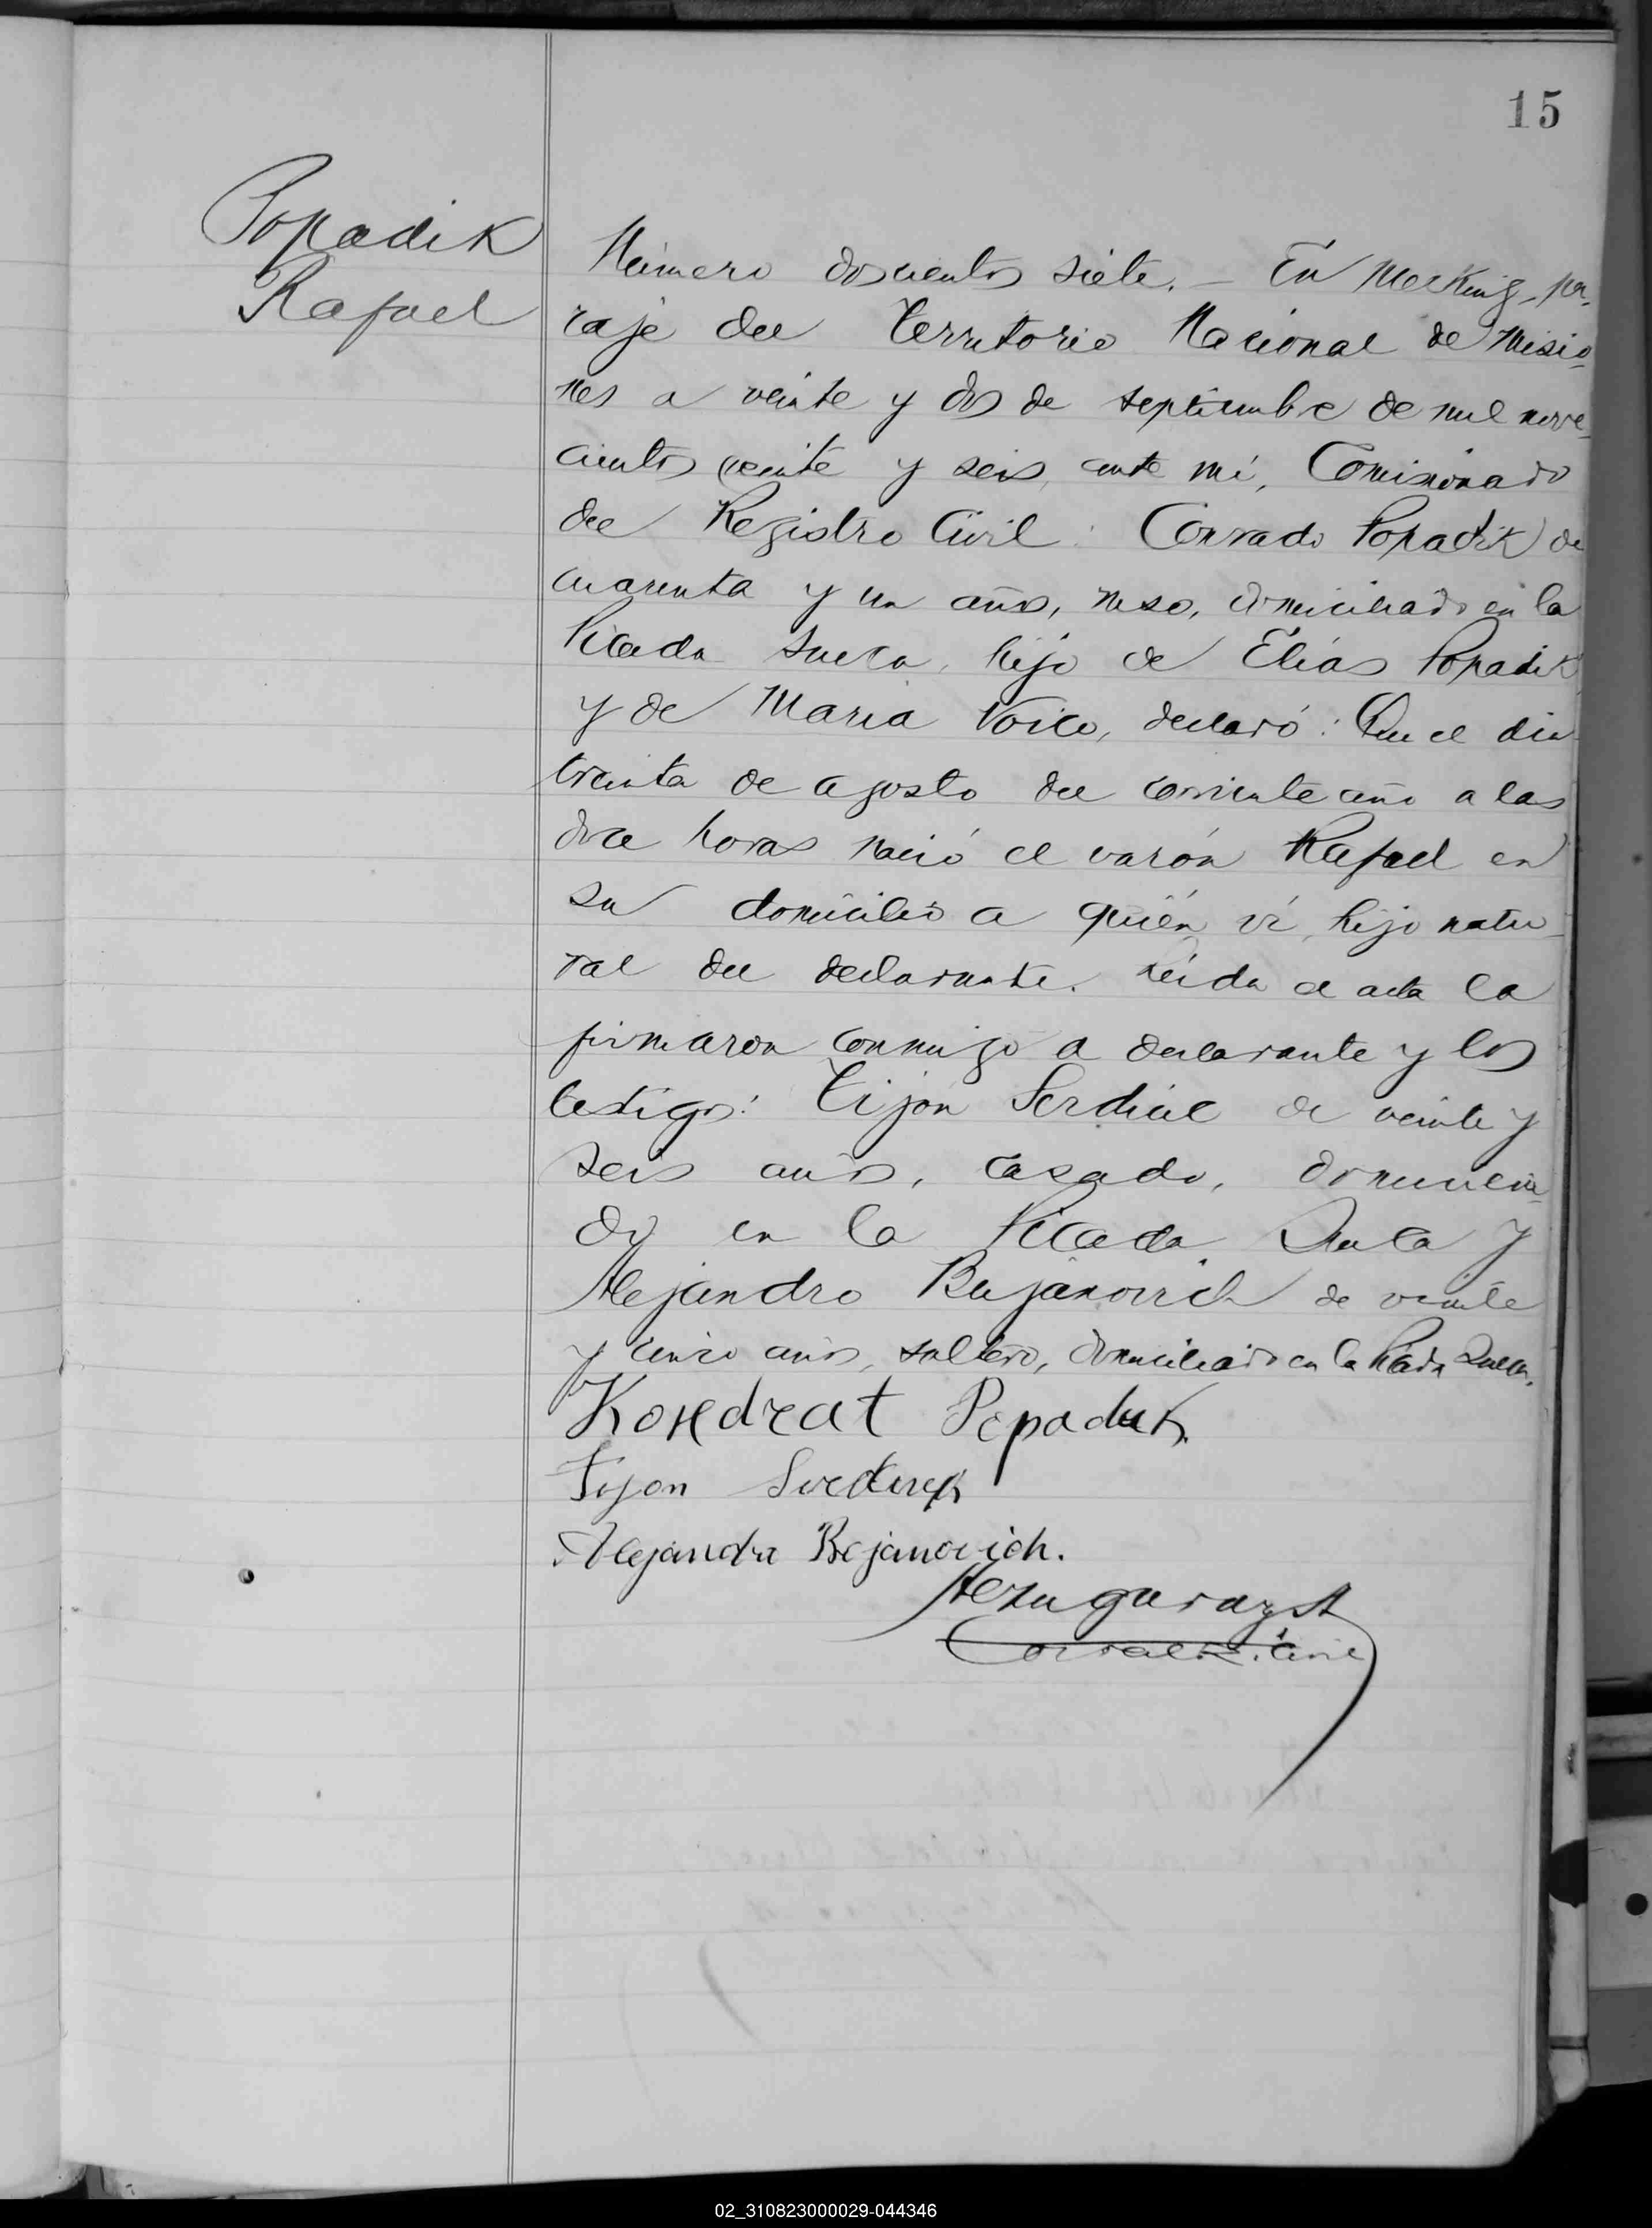 15
Popadik
Rafael
Número doscientos siete. — En Mecking, pa-
raje del Territorio Nacional de Misio-
nes a veinte y dos de septiembre de mil nove-
cientos veinte y seis, ante mí, Comisionado
del Registro Civil: Conrado Popadik de
cuarenta y un años, ruso, domiciliado en la
Picada Sueca, hijo de Elías Popadik
y de María Voico, declaró: Que el dia
treinta de agosto del corriente año a las
doce horas nació el varón Rafael en
su domicilio a quién ví, hijo natu-
ral del declarante. Leida el acta la
firmaron conmigo el declarante y los
testigos: Tijón Serdiuc de veinte y
seis años, casado, domicilia-
do en la Picada Sueca y
Alejandro Bujanovich de veinte
y cinco años, soltero, domiciliado en la Picada Sueca.
Kondrat Popaduk
Tijon
Alejandro Bujanovich.
02_310823000029-044346